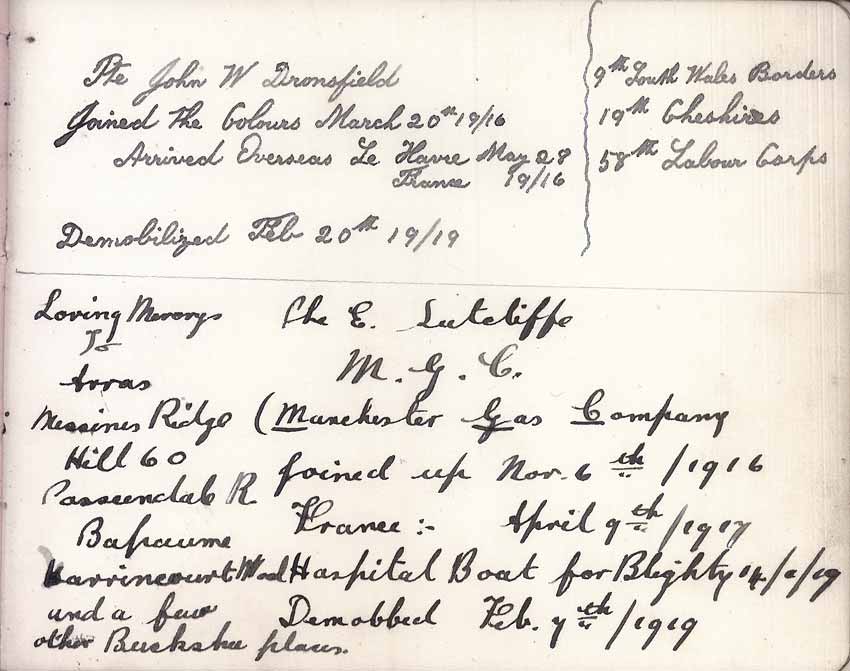 Pte John W Dronsfield
Joined the Colours March 20th 19/16
Arrived Overseas Le Havre May 28
France 19/16
Demobilized Feb 20th 19/19
9th South Wales Borders
19th Cheshires
58th Labour Corps
Loving Memorys
To
Arras
Messines Ridge
Hill 60
Passcendale R
Bapaume
Harrincourt Wood
and a few
other Buckshee places.
Pte E. Sutcliffe
M. G. C.
(Manchester Gas Company
Joined up Nov. 6th /1916
France :- April 9th /1917
Hospital Boat for Blighty
Demobbed Feb. 7th /1919